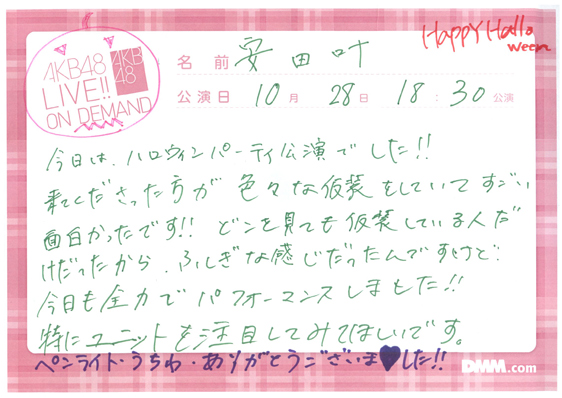 AKB48
LIVE!!
ON DEMAND
AKB
48
HAPPY Hallo
ween
名前 安田叶
公演日 10月 28日 18:30 公演
今日は、ハロウィンパーティ公演でした!!
来てくださった方が色々な仮装をしていてすごい
面白かったです!! どこを見ても仮装している人だ
けだったから、ふしぎな感じだったんですけど、
今日も全力でパフォーマンスしました!!
特にユニットを注目してみてほしいです。
ペンライト・うちわ・ありがとうございま♥した!!
DMM.com